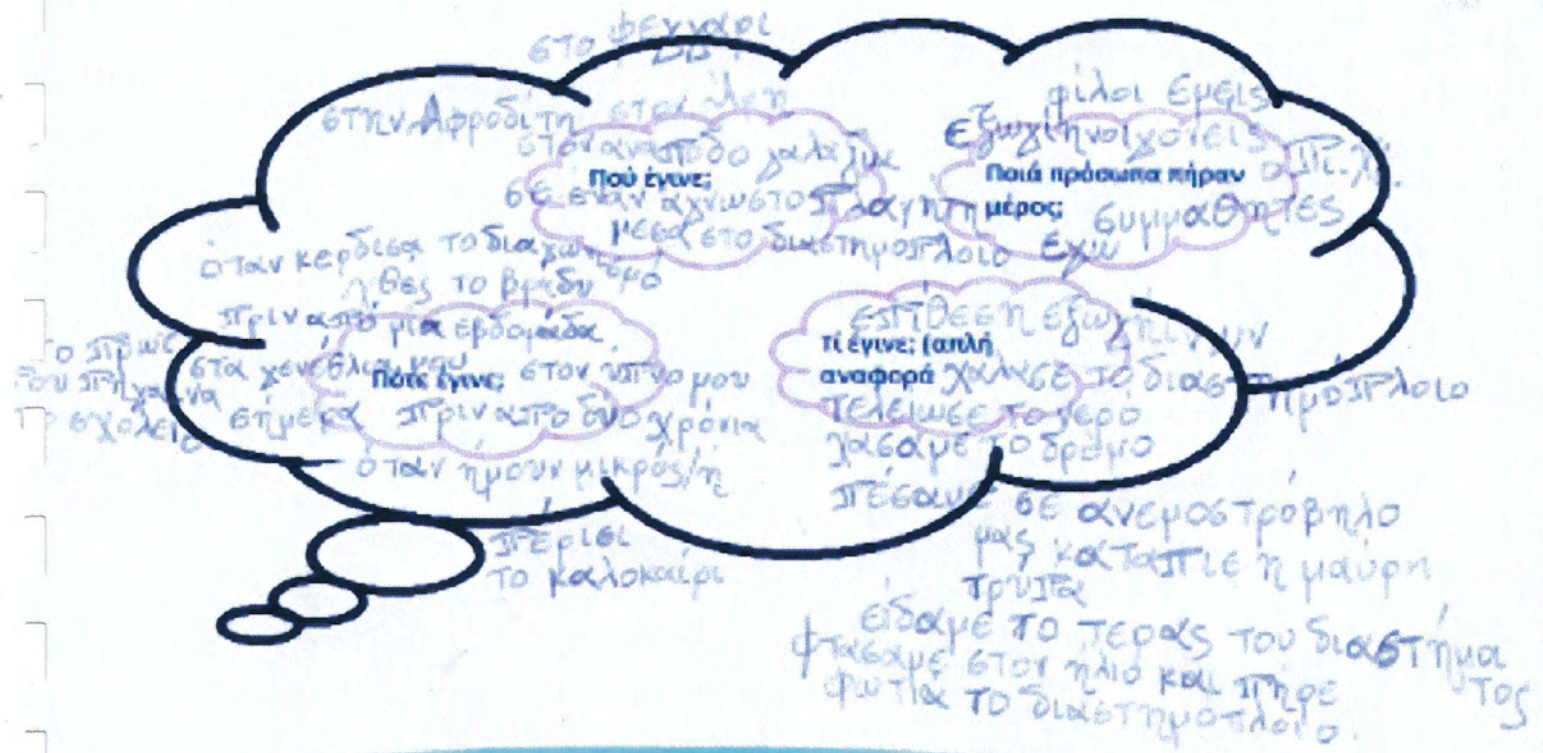 στο φεγγάρι
στην Αφροδίτη στον Άρη
στον ανάποδο γαλαξία
Πού έγινε;
σε έναν αγνωστο πλανήτη
μεσα στο διαστημοπλοιο
φίλοι εμεις
εξωγήινοι γονείς
ο Πι.χι.
Ποιά πρόσωπα πήραν
μέρος;
συμμαθητες
εγω
όταν κερδισα το διαγωνισμό
χθες το βραδυ
πριν από μια εβδομάδα
το πρωι
που πηγαινα
το σχολειο
στα γενέθλια μου
Πότε έγινε;
στον υπνο μου
σημερα πριν απο δυο χρόνια
όταν ήμουν μικρός/ή
πέρισι
το καλοκαίρι
επίθεση εξωγηίνων
τί έγινε; (απλή
αναφορά
χαλασε το διαστημόπλοιο
τελειωσε το νερο
χασαμε το δρομο
πέσαμε σε ανεμοστρόβηλο
μας καταπιε η μαύρη
τρυπα
είδαμε το τερας του διαστήματος
φτασαμε στον ηλιο και πήρε
φωτιά το διαστημοπλοιο.